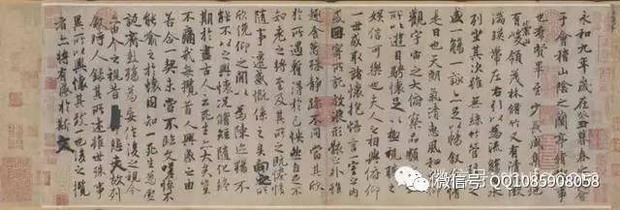 永和九年歲在癸丑暮春之初會
于會稽山陰之蘭亭脩禊事
也羣賢畢至少長咸集此地
有崇山峻領茂林脩竹又有清流激
湍暎帶左右引以為流觴曲水
列坐其次雖無絲竹管弦之
盛一觴一詠亦足以暢敘幽情
是日也天朗氣清惠風和暢仰
觀宇宙之大俯察品類之盛
所以遊目騁懷足以極視聽之
娛信可樂也夫人之相與俯仰
一世或取諸懷抱悟言一室之內
或因寄所託放浪形骸之外雖
趣舍萬殊靜躁不同當其欣
於所遇蹔得於己怏然自足不
知老之將至及其所之既惓情
隨事遷感慨係之矣向之所
欣俛仰之閒以為陳迹猶不
能不以之興懷況脩短隨化終
期於盡古人云死生亦大矣豈
不痛哉每攬昔人興感之由
若合一契未嘗不臨文嗟悼不
能喻之於懷固知一死生為虛
誕齊彭殤為妄作後之視今
亦由今之視昔悲夫故列
敘時人錄其所述雖世殊事
異所以興懷其致一也後之攬
者亦將有感於斯文
微信号: QQ1085908058